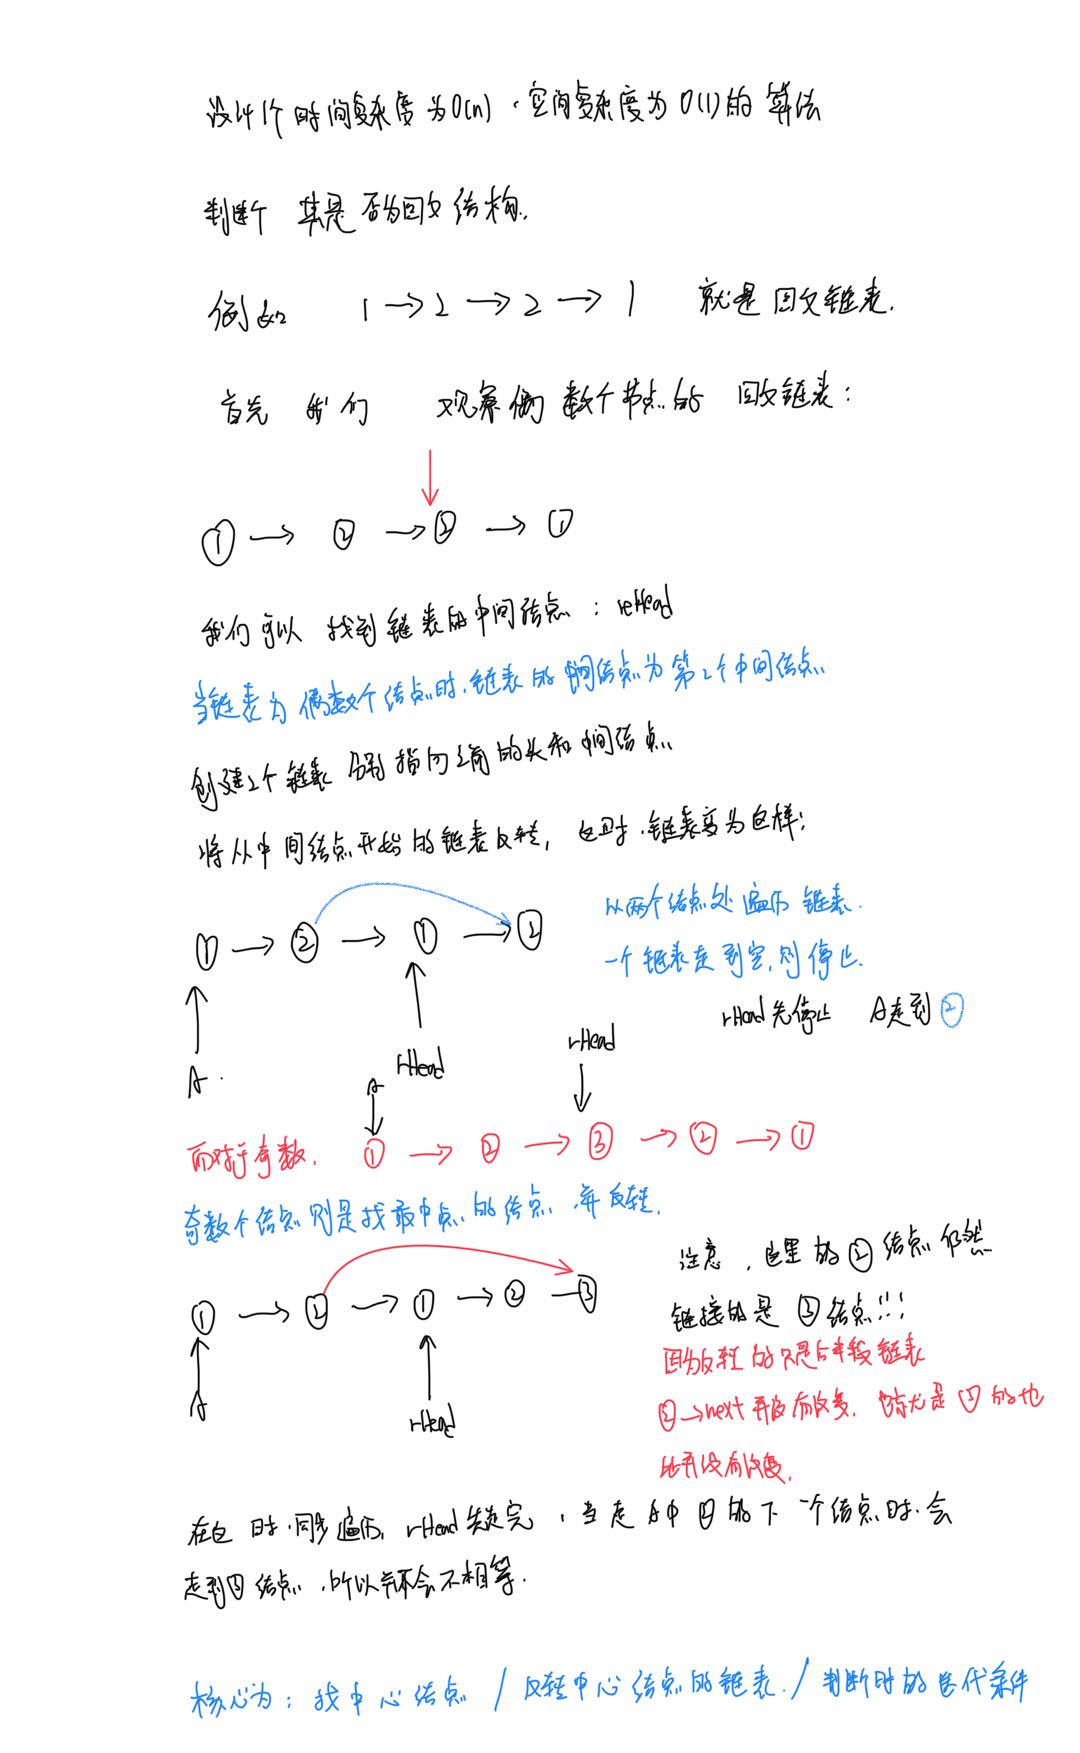 设计1个时间复杂度为O(n),空间复杂度为O(1)的算法
判断其是否为回文结构.
例如 1→2→2→1 就是回文链表.
首先 我们 观察偶数个节点的 回文链表:
① → ② → ② → ①
我们可以 找到链表的中间结点: reHead
当链表为偶数个结点时,链表的中间结点为第2个中间结点
创建2个链表 分别指向之前的头和中间结点
将从中间结点开始的链表反转, 这时,链表变为这样:
以两个结点处遍历链表.
① → ② → ① → ②
一个链表走到空,则停止.
rHead先停止 A走到②
rHead
A. rHead
A
而对于奇数. ① → ② → ③ → ② → ①
奇数个结点则是找最中点的结点 并反转.
注意,这里的②结点仍然
① → ② → ① → ② — ③
链接的是③结点!!!
因为反转的只是后半段链表
A
②→next并没有改变. 的地
rHead
址并没有改变.
在这时,同步遍历, rHead先走完,当走A中②的下一个结点时,会
走到③结点,所以并不会不相等.
核心为: 找中心结点 / 反转中心结点的链表 / 判断时的迭代条件